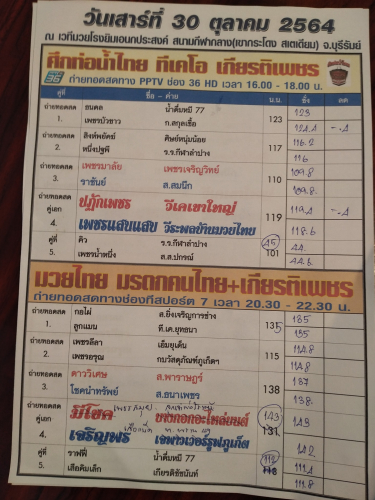 วันเสาร์ที่ 30 ตุลาคม 2564
ณ เวทีมวยโรงยิมเอนกประสงค์ สนามกีฬากลาง(เขากระโดง สเตเดียม) จ.บุรีรัมย์
ศึกท่อน้ำไทย ทีเคโอ เกียรติเพชร
36 ถ่ายทอดสดทาง PPTV ช่อง 36 HD เวลา 16.00 - 18.00 น.
คู่ที่ ชื่อ - ค่าย น.น. ชั่ง ลด
ถ่ายทอดสด 1. ธนดล น้ำดื่มหมี 77 123 123
เพชรบัวขาว ก.สกุลเชื้อ 124.1
ถ่ายทอดสด 2. สิงห์พยัคฆ์ ศิษย์หนุ่มน้อย 117 116.2
หนึ่งปฐพี ร.ร.กีฬาลำปาง 116
ถ่ายทอดสด 3. เพชรมาลัย เพชรเจริญวิทย์ 110 109.8
ราชันย์ ส.สมนึก 109.8
ถ่ายทอดสด คู่เอก 4. ปฏักเพชร วีเคเขาใหญ่ 119 119.1
เพชรแสนแสบ วีระพลย้านมวยไทย 118.6
คู่ที่ 5. คิว ร.ร.กีฬาลำปาง 45 44
เพชรน้ำหนึ่ง ส.ส.ปกรณ์ 101 44.6
มวยไทย มรดกคนไทย+เกียรติเพชร
ถ่ายทอดสดทางช่องทีสปอร์ต 7 เวลา 20.30 - 22.30 น.
ถ่ายทอดสด 1. กอไผ่ ส.ยิ่งเจริญการช่าง 135 135
ลูกแมน ที.เค.ยุทธนา 135
ถ่ายทอดสด 2. เพชรลีลา เอ็มยูเด็น 115 114.8
เพชรอรุณ กบวัสดุภัณฑ์ภูเก็ตฯ 114.8
ถ่ายทอดสด 3. ดาววิเศษ ส.พาราษฎร์ 138 137
โชคนำทรัพย์ ส.ธนาเพชร 138
ถ่ายทอดสด คู่เอก 4. มีโชค บางกอกอะไหล่ยนต์ 143 131 143
เจริญพร เจพาวเวอร์รูฟภูเก็ต 142
ถ่ายทอดสด 5. ราฟฟี่ น้ำดื่มหมี 77 112 113 111.1
เสือคิมเล็ก เกียรติชัชนันท์ 111.8